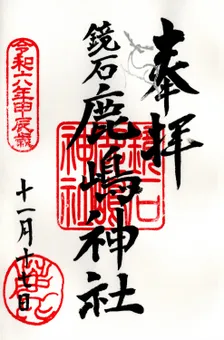 奉拝
鏡石鹿嶋神社
鏡石
神社
令和六年甲辰歳
十一月十七日